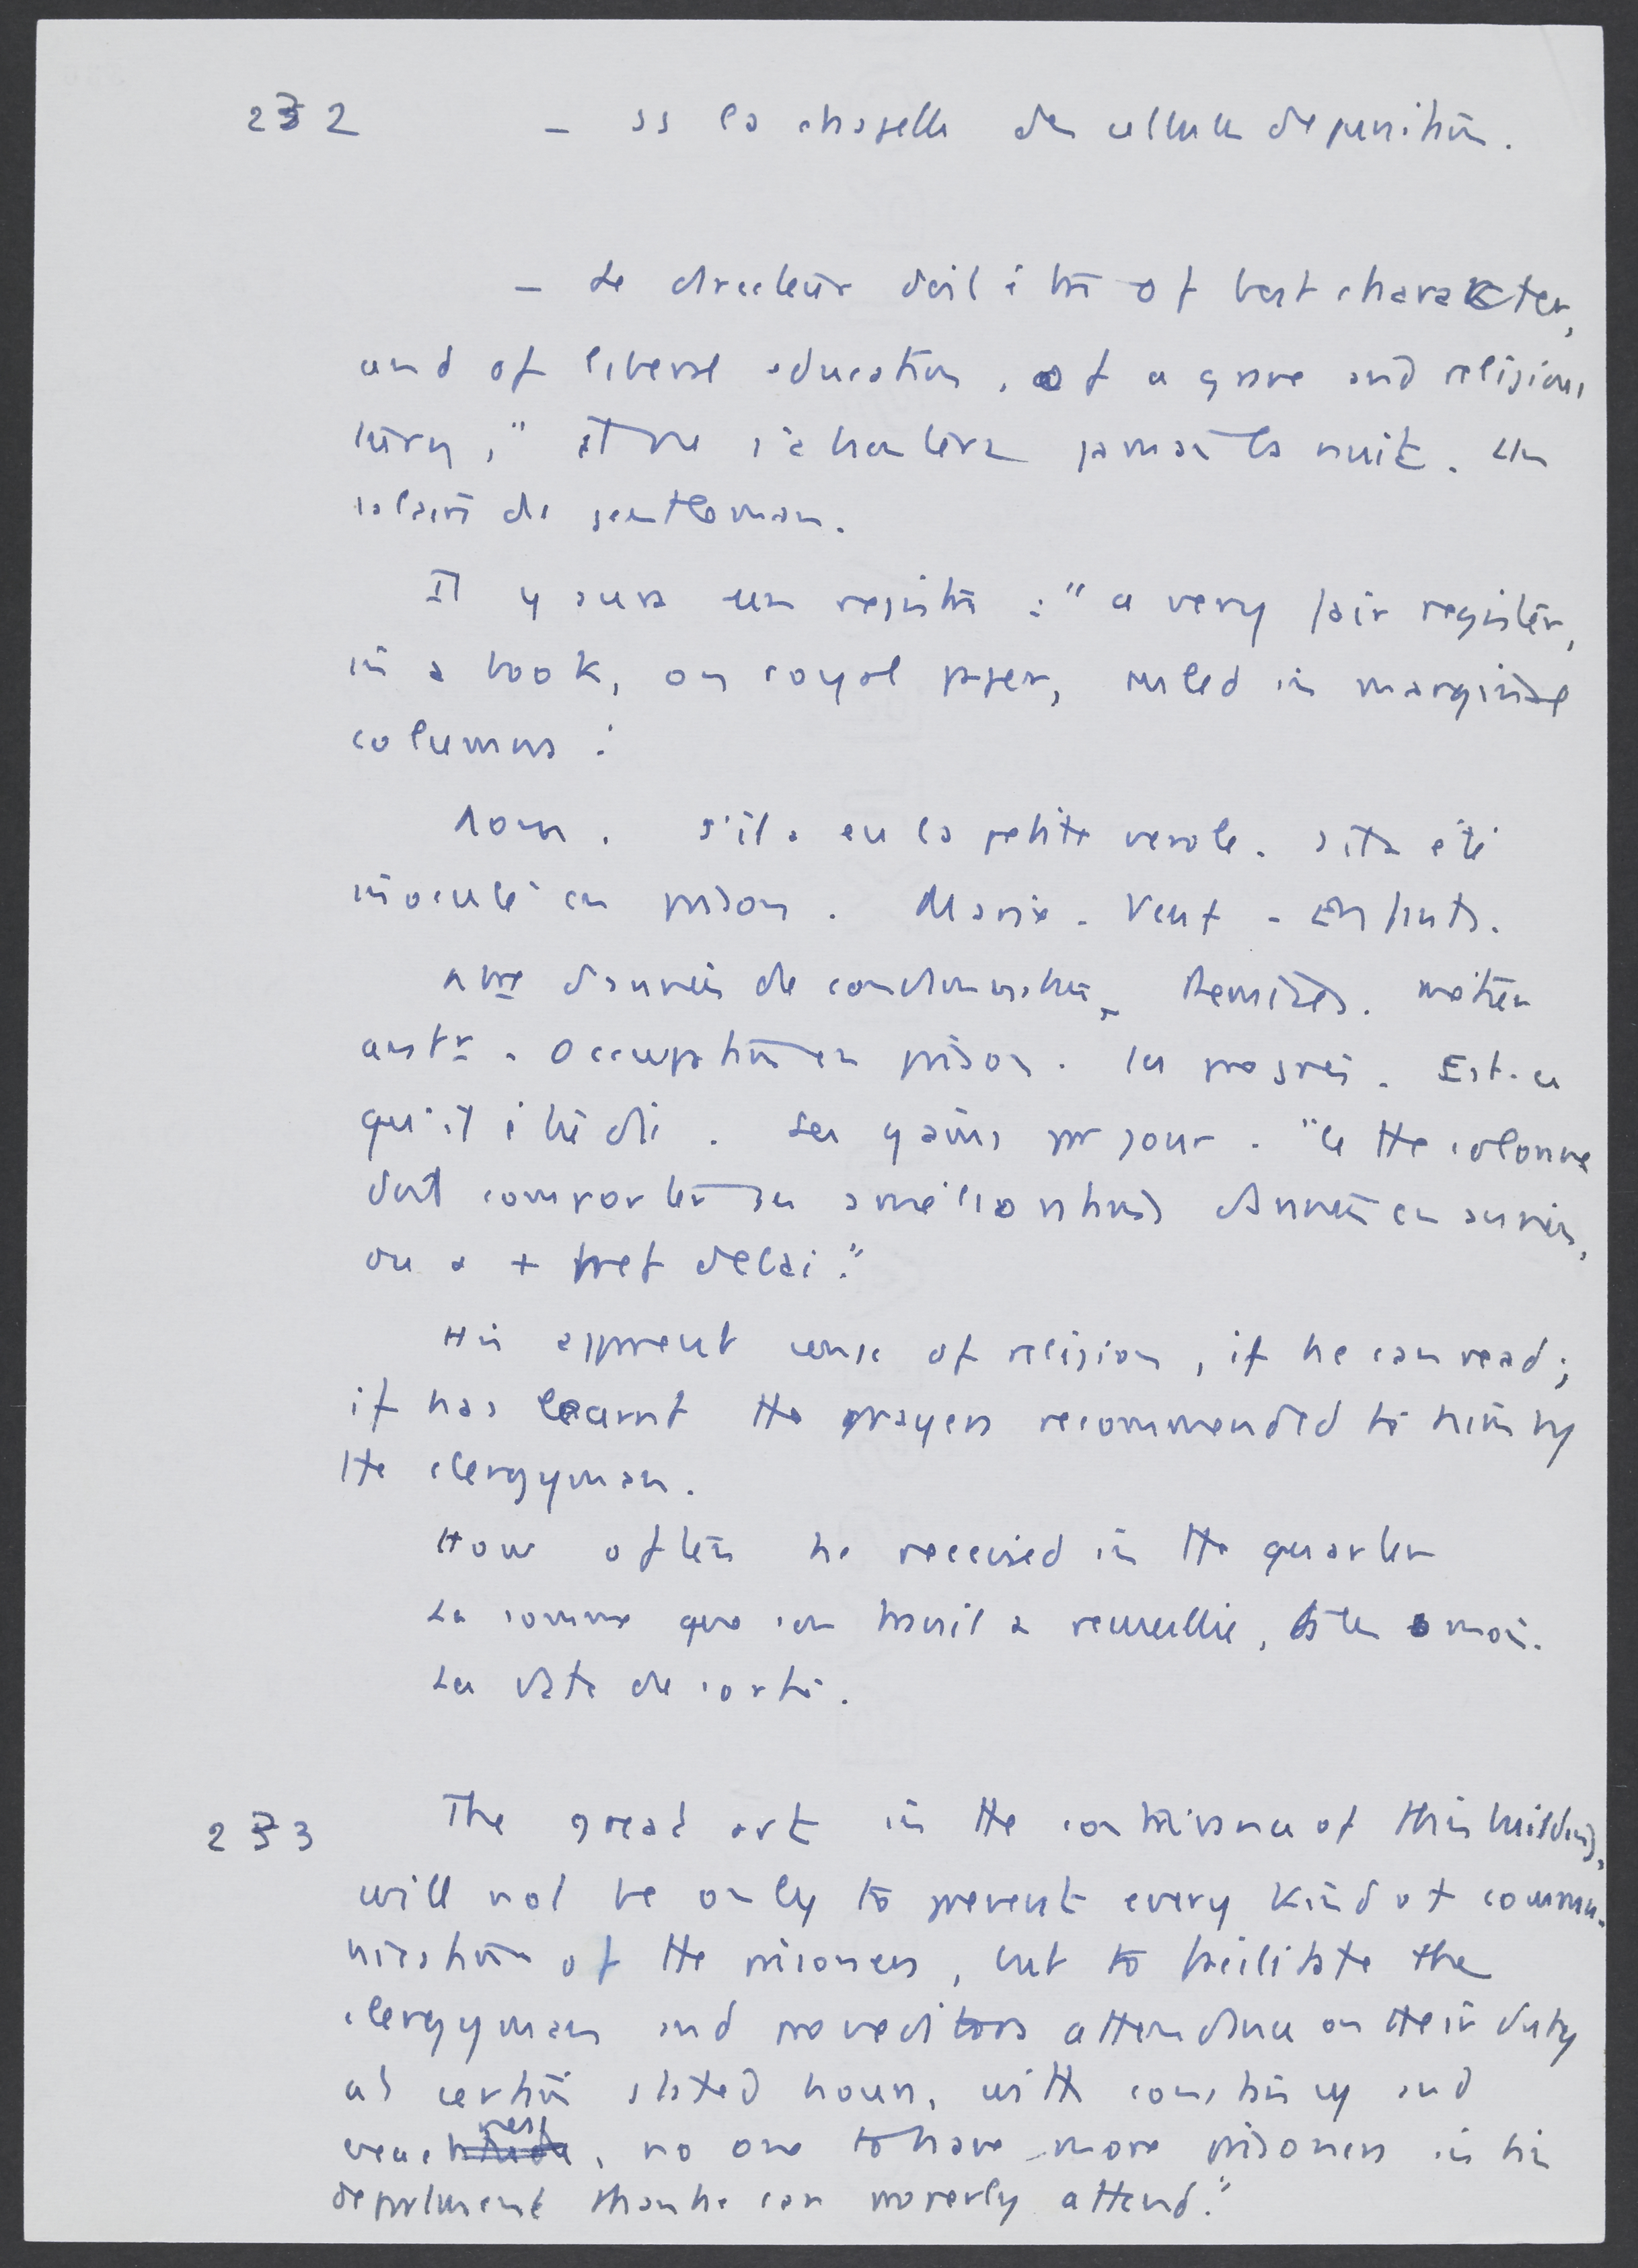 232 – ss la chapelle des cellules de punition.
– Le directeur doit être of best character,
and of liberal education, of a grave and religious
turn," et ne s'absentera jamais la nuit. Un
salaire de gentleman.
Il y aura un registre : "a very fair register,
in a book, on royal paper, ruled in marginal
columns :
Nom. S'il a eu la petite verole. S'il a été
inoculé en prison. Marié - Veuf - Enfants.
Nbre d'années de condamnation. Remises. Métier
antr. Occupation en prison. Ses progrès. Est-ce
qu'il étudie. Ses gains par jour. "Cette colonne
doit comporter ses améliorations d'année en année,
ou a + bref delai."
His apparent sense of religion, if he can read;
if has learnt the prayers recommended to him by
the clergyman.
How often he received in the quarter
La somme que son travail a recueillie, ts les 6 mois.
La date de sortie.
233 The great art in the contrivance of this building,
will not be only to prevent every kind of commu-
nication of the prisoners, but to facilitate the
clergyman and proveditors attendance on their duty
at certain stated hours, with constancy and
, no one to have more prisoners in his
department than he can properly attend."